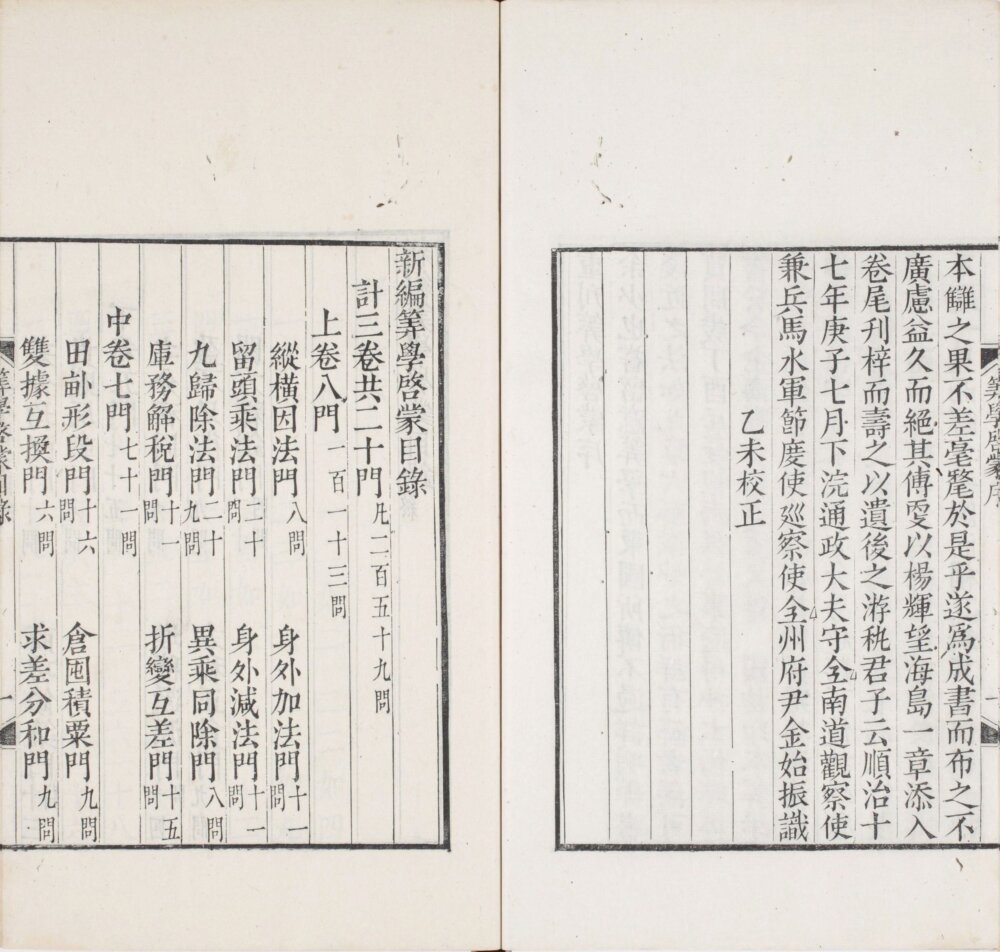 本讎之果不差毫氂於是乎遂爲成書而布之不
廣慮益久而絕其傳叓以楊輝望海島一章添入
卷尾刋梓而壽之以遺後之游秇君子云順治十
七年庚子七月下浣通政大夫守全南道觀察使
兼兵馬水軍節度使廵察使全州府尹金始振識
乙未校正
新編筭學啓蒙目錄
計三卷共二十門 凡二百五十九問
上卷八門 一百一十三問
縱橫因法門 八問 身外加法門 十一問
留頭乘法門 二十問 身外減法門 十一問
九歸除法門 二十九問 異乘同除門 八問
庫務解稅門 十一問 折變互差門 十五問
中卷七門 七十一問
田畝形段門 十六問 倉囤積粟門 九問
雙據互換門 六問 求差分和門 九問